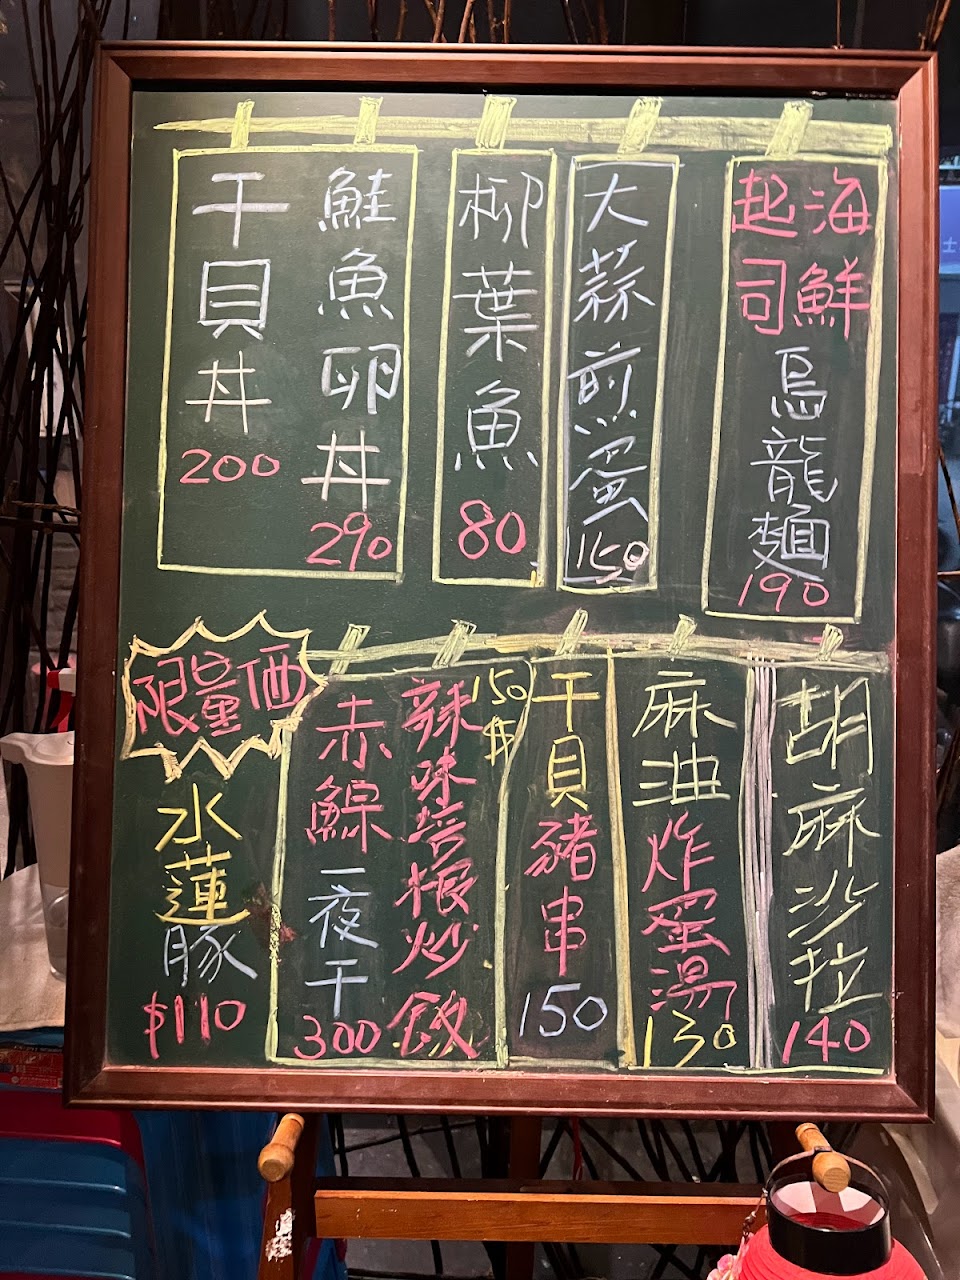 海鮮
起司
烏龍麵
190
大蒜煎蛋
150
柳葉魚
80
鮭魚卵丼
290
干貝丼
200
胡麻沙拉
140
麻油炸蛋湯
130
干貝豬串
150
辣味培根炒飯
150$
赤鯮一夜干
300
限量価
水蓮豚
$110